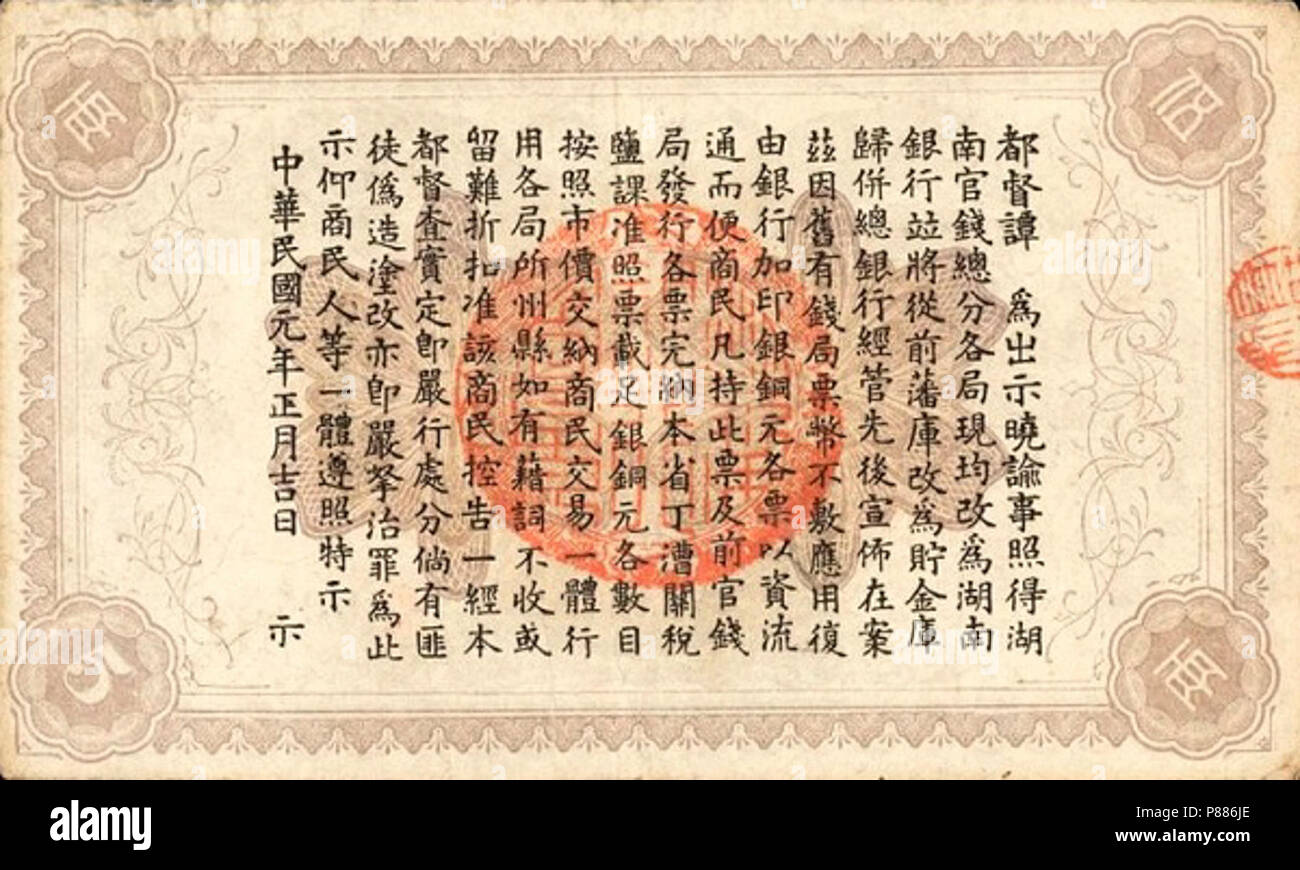 都督譚　爲出示曉諭事照得湖
南官錢總分各局現均改爲湖南
銀行竝將從前藩庫改爲貯金庫
歸併總銀行經管先後宣佈在案
茲因舊有錢局票幣不敷應用復
由銀行加印銀銅元各票以資流
通而便商民凡持此票及前官錢
局發行各票完納本省丁漕關税
鹽課准照票載足銀銅元各數目
按照市價交納商民交易一體行
用各局所州縣如有藉詞不收或
留難折扣准該商民控告一經本
都督查實定卽嚴行處分倘有匪
徒僞造塗改亦卽嚴拏治罪爲此
示仰商民人等一體遵照特示
中華民國元年正月吉日　示
兩
伍
5
兩
alamy
alamy
Image ID: P886JE
www.alamy.com